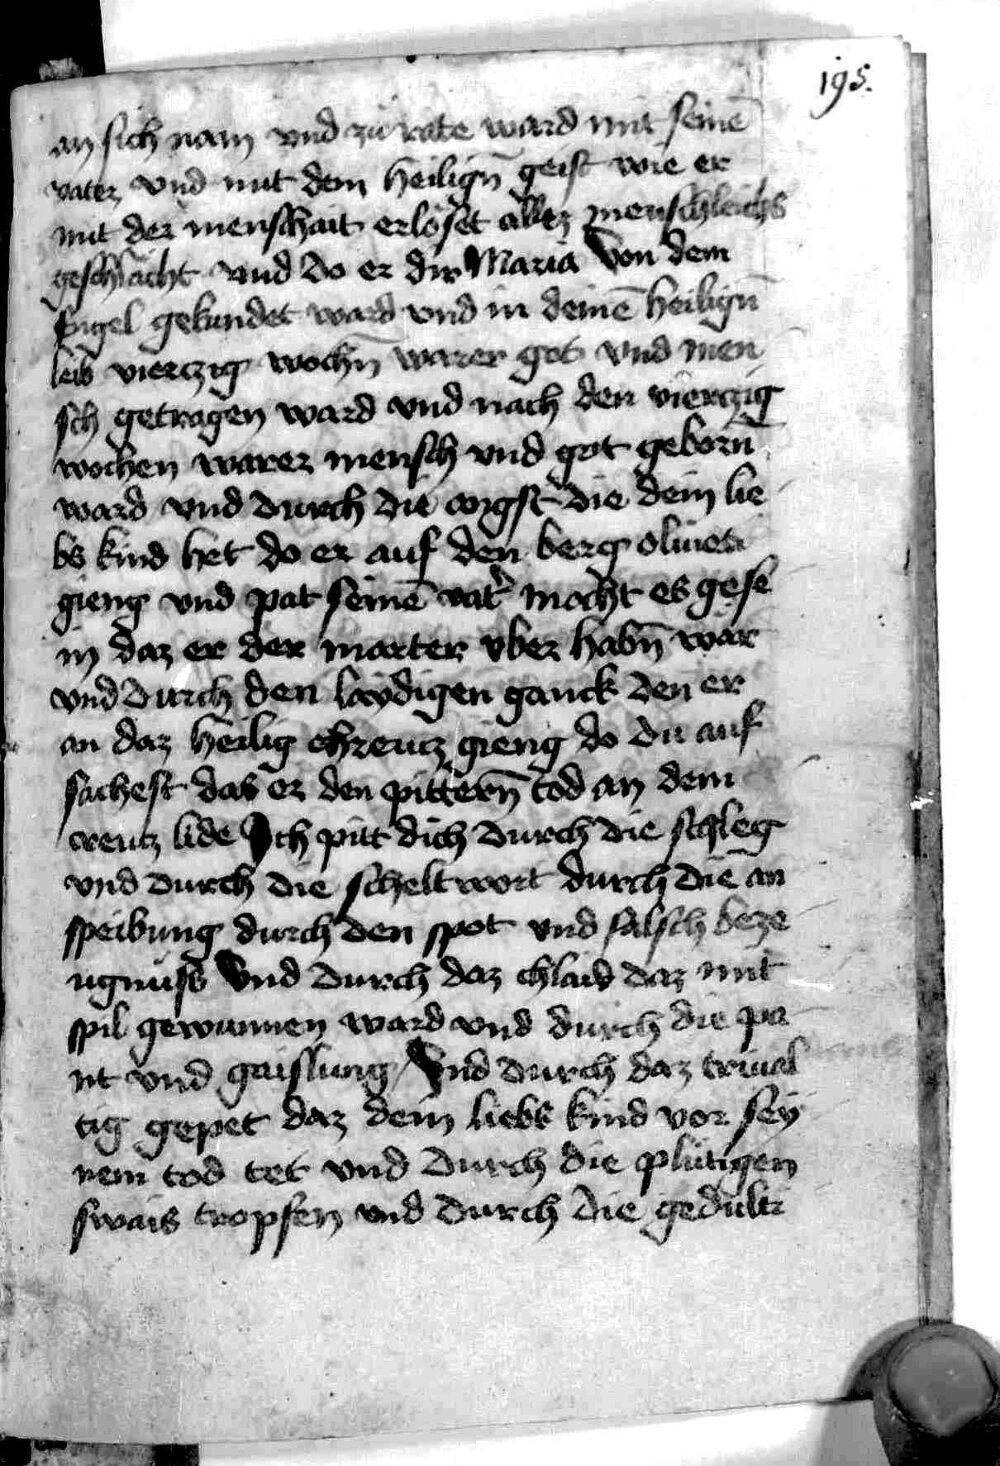 195.
an sich nam vnd zu rate ward mit seinē
vater vnd mit dem heilign̄ geist wie er
mit der menschait erlöset allez menschleichs
geschlächt vnd do er dir Maria Von dem
Engel gekundet ward vnd in deinē heilign̄
leib vierczig wochn̄ warer got vnd men
sch getragen ward vnd nach den vierczig
wochen warer mensch vnd got geborn̄
ward vnd durch die angst die dein lie
bs kind het do er auf den berg oliueti
gieng vnd pat seinē vat̓ mocht es gese
in daz er der marter vber habn̄ wär
vnd durch den laydigen ganck den er
an daz heilig chreucz gieng do du auf
sachest das er den pittern̄ tod an dem
creucz lide Ich pitt dich durch die schleg
vnd durch die scheltwort durch die an
speibung durch den spot vnd falsch beze
ugnuss Vnd durch daz chlaid daz mit
spil gewunnen ward vnd durch die pa
nt vnd gaislung Vnd durch daz triual
tig gepet daz dein liebs kind vor sey
nem tod tet vnd durch die plutigen
swais tropfen vnd durch die gedulti